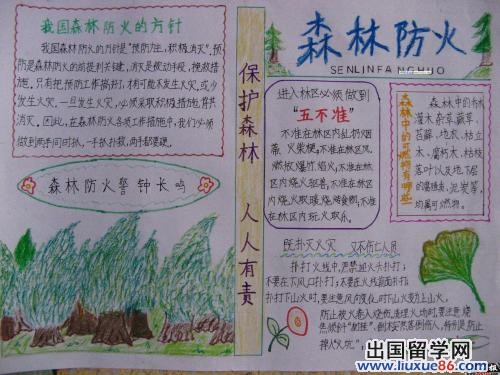 我国森林防火的方针
我国森林防火的方针是“预防为主，积极消灭”，预
防是森林防火的前提和关键，消灭是被动手段，挽救措
施，只有把预防工作搞好，才有可能不发生火灾，或少
发生火灾，一旦发生火灾，必须采取积极措施，
消灭，因此，在森林防火各项工作措施中，我们必须
做到两手同时抓，一手抓，两手都要硬。
森林防火警钟长鸣
保护森林 人人有责
森林防火
SENLINFANGHUO
进入林区必须做到
“五不准”
不准在林区内乱扔烟
蒂、火柴梗，不准在林区
燃放爆竹、焰火，不准在林
区内烧火驱兽，不准在林
区内烧火取暖、烧食物，不准
在林区内玩火取乐。
森林中的可燃物有哪些
森林中的乔
灌木、杂草、蕨草、
苔藓、地衣、枯立
木、腐朽木、枯枝
落叶以及地下层
的腐殖质、泥炭等，
均属可燃物。
既扑灭火灾 又不伤亡人员
扑打火线中，严禁迎火头扑打；
不要在下风口扑打；不要在火线前面扑打；
扑打下山火时，要注意风向变化，时下山火变为上山火，
防止被火卷入烧伤，清理火场时，要注意烧
焦倾斜“树挂”，倒木突然落倒伤人，特别是防止
掉入“火坑”，
出国留学网
www.liuxue86.com